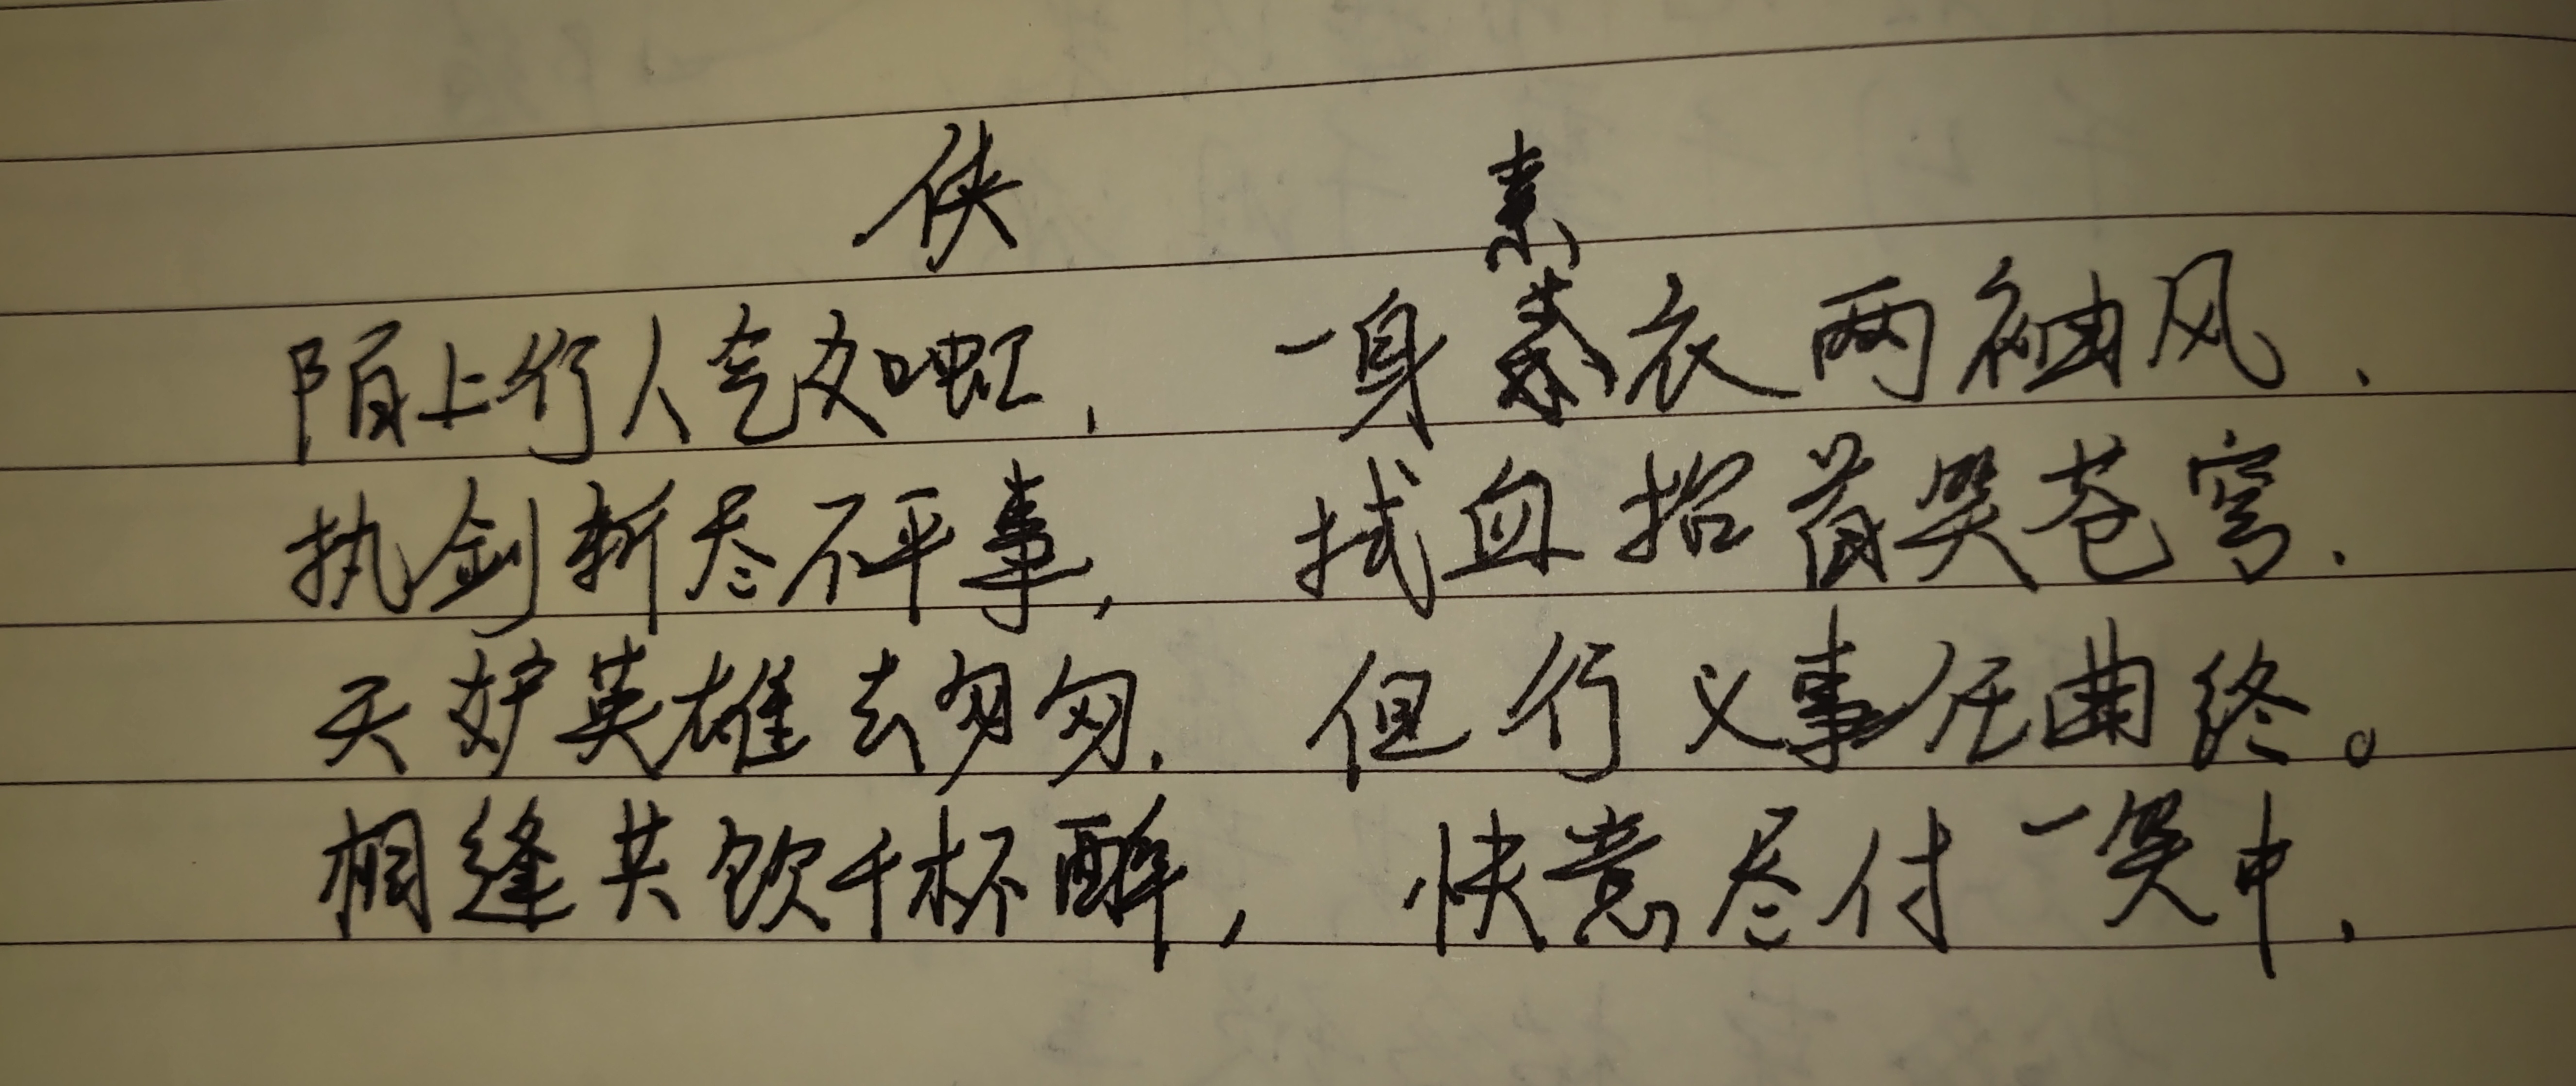 侠
素
陌上行人气如虹, 一身素衣两袖风.
执剑斩尽不平事, 拭血抬首哭苍穹.
天妒英雄去匆匆. 但行义事任曲终。
相逢共饮千杯醉, 快意尽付一笑中.